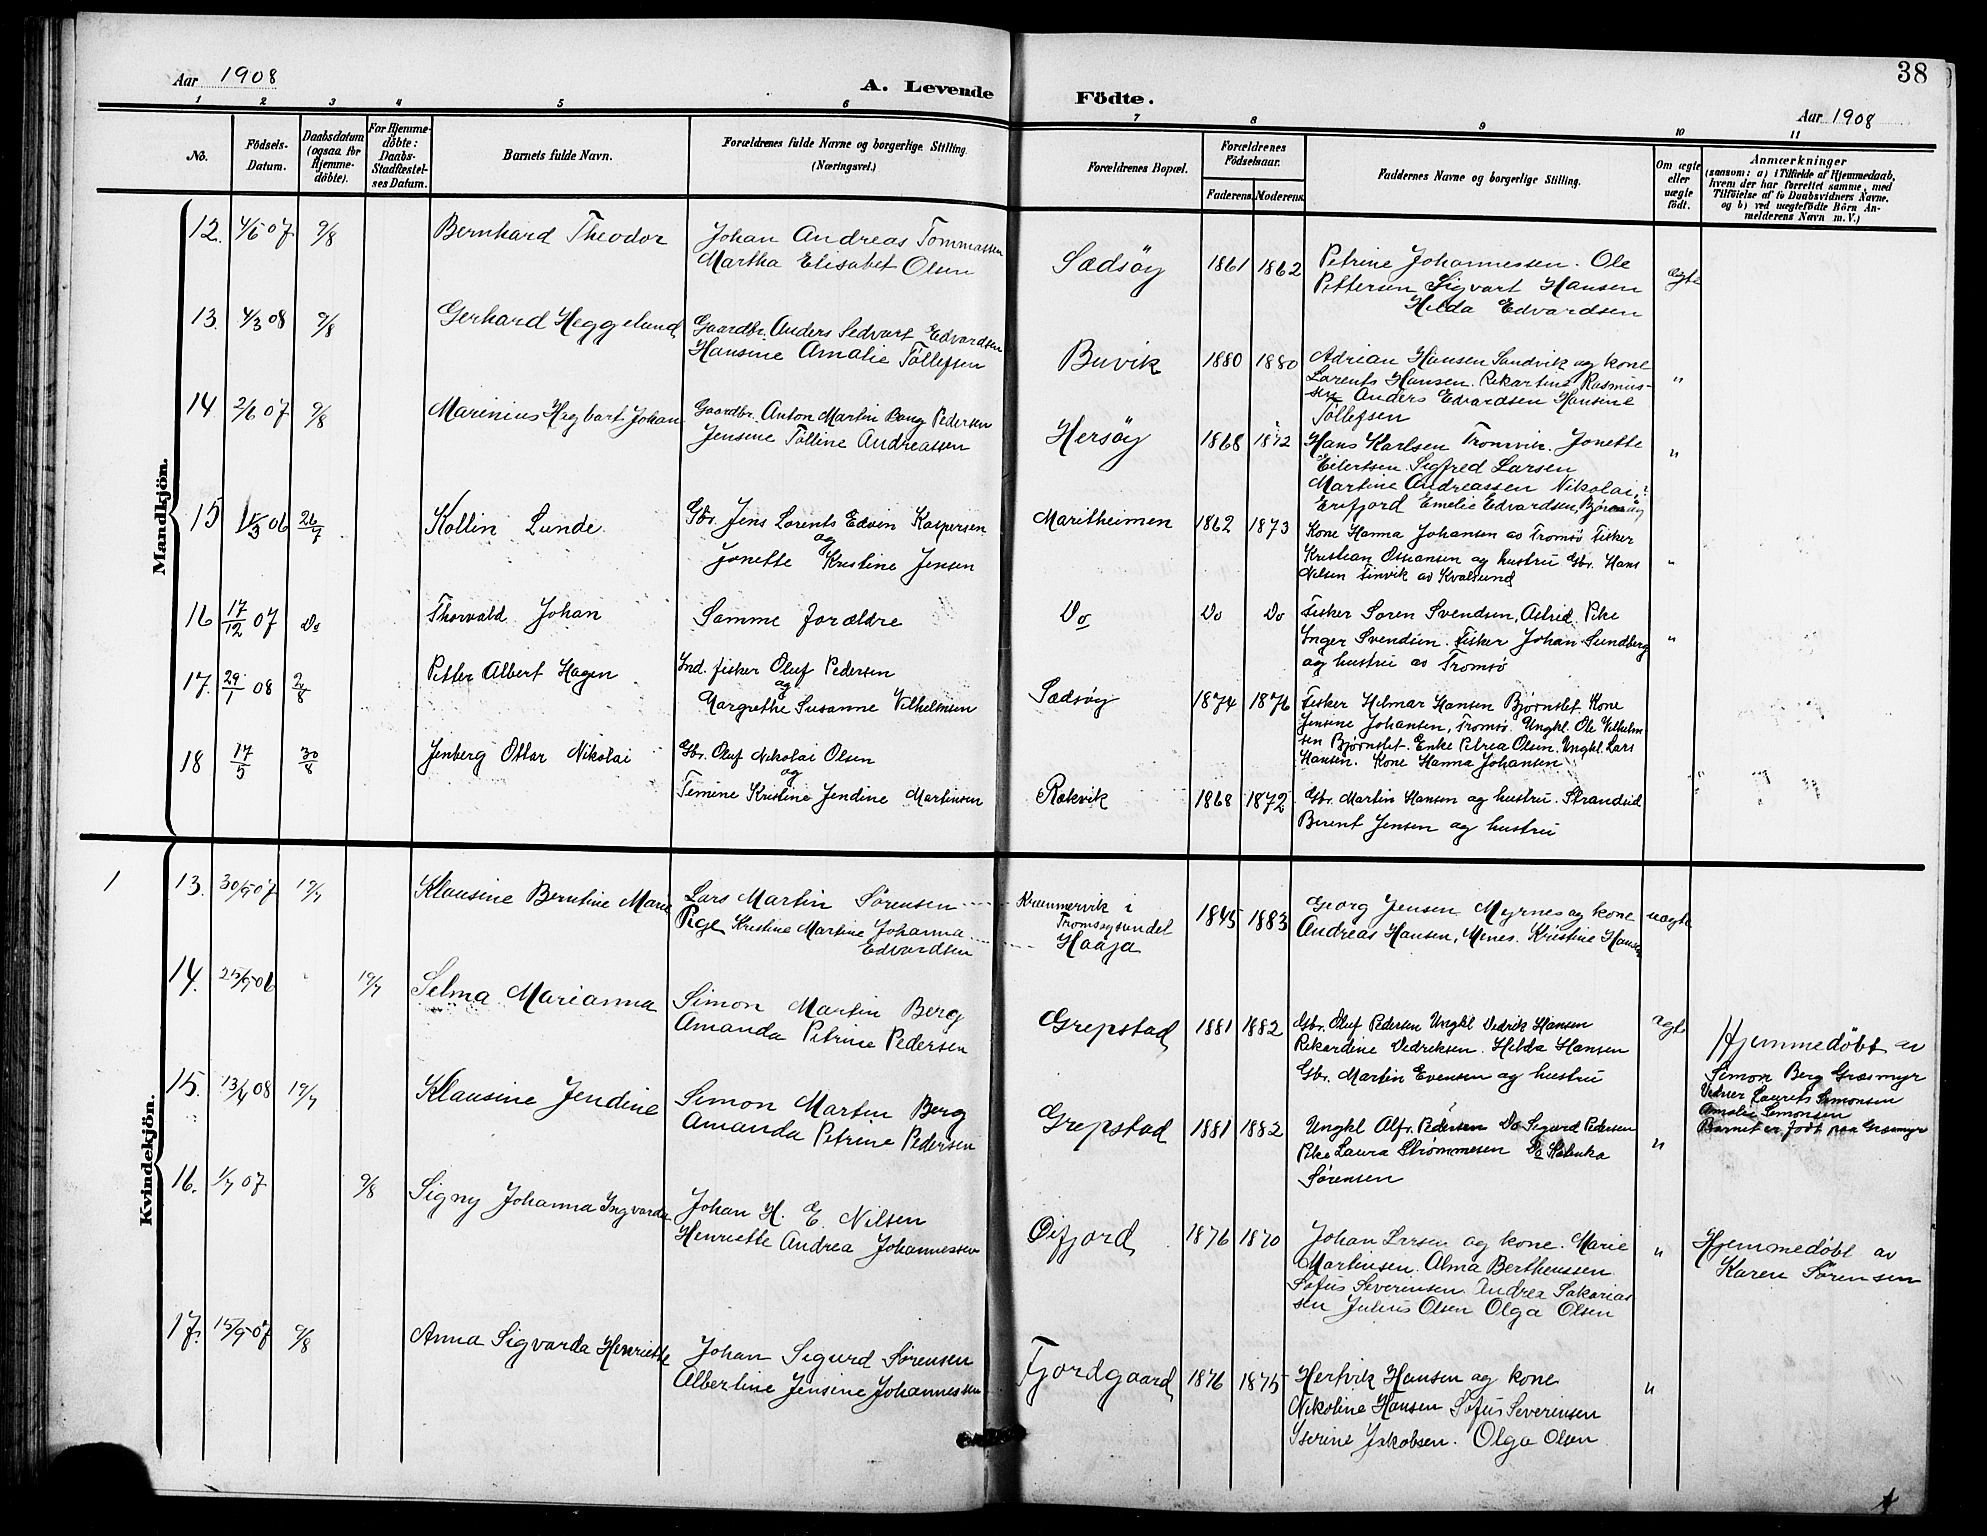 38
Aar 1908
A. Levende Födte.
Aar 1908
1 2 3 4 5 6 7 8 9 10 11
No.
Födsels-Datum.
Daabsdatum (ogsaa for Hjemme-döbte).
For Hjemme-döbte: Daabs-Stadfæstel-ses Datum.
Barnets fulde Navn.
Forældrenes fulde Navne og borgerlige Stilling.
(Næringsvei.)
Forældrenes Bopæl.
Forældrenes Födselsaar.
Faderens. Moderens.
Faddernes Navne og borgerlige Stilling.
Om ægte eller uægte födt.
Anmærkninger
(saasom: a) i Tilfælde af Hjemmedaab,
hvem der har forrettet samme, med
Tilföielse af to Daabsvidners Navne.
og b) ved uægtefödte Börn An-
melderens Navn m. V.)
Mandkjön.
12. 4/6 07 9/8 Bernhard Theodor
Johan Andreas Tommassen
Martha Elisabet Olsen
Sædsøy 1861 1862
Petrine Johannessen. Ole
Pettersen Sigvart Hansen
Hilda Edvardsen
ægte
13. 4/3 08 9/8 Gerhard Heggelund
Gaardbr. Anders Sedvart Edvardsen
Hansine Amalie Tøllefsen
Buvik 1880 1880
Adrian Hansen Sandvik og kone
Lorents Hansen. Rikartine Rasmus-
sen Anders Edvardsen Hansine
Tøllefsen
"
14 2/6 07 9/8 Marinius Hegbart Johan
Gaardbr. Anton Martin Bang Pedersen
Jensine Tølline Andreassen
Hersøy 1868 1872
Hans Karlsen Tromvik. Jonette
Eilertsen. Sigfred Larsen
Martine Andreassen Nikolai
Erfjord Emelie Edvardsen,
"
15 06 26/7 Kollin Lunde
Gbr. Jens Lorents Edvin Kaspersen
og
Jonette Kristine Jensen
Maritheimen 1862 1873
Kone Hanna Johansen av Tromsø Fisker
Kristian Ossiansen og hustru Gbr. Hans
Nilsen Finvik av Kvalsund
"
16 17/12 07 Do Thorvald Johan
Samme forældre
Do Do Do
Fisker Soren Svendsen, Astrid Pike
Inger Svendsen. Fisker Johan Sundberg
og hustru av Tromsø
"
17. 29/1 08 2/8 Petter Albert Hagen
Ind. fisker Oluf Pedersen
og
Margrethe Susanne Vilhelmsen
Sædsøy 1874 1876
Fisker Hilmar Hansen Bjørnslet. Kone
Jensine Johansen, Tromsø. Ungkl. Ole Vilhelm
sen Bjørnslet. Enke Petrea Olsen. Ungkl. Lars
Hansen. Kone Hanna Johansen
18 17/5 30/8 Jenberg Ottar Nikolai
Gbr. Oluf Nikolai Olsen
og
Timine Kristine Jendine Martinsen
Rækvik 1868 1872
Gbr. Martin Hansen og hustru. Strandsid
Berent Jensen og hustru
Kvindekjön.
1 13. 30/9 07 19/7 Klausine Berntine Marie
Lars Martin Sørensen
Pige Kristine Martine Johanna
Edvardsen
Kræmmervik i
Tromsøsundet
Haaja
1845 1883
Georg Jensen Myrnes og kone
Andreas Hansen, Menes. Kristine Hansen
uægte
14. 25/5 06 19/7 Selma Marianna
Simon Martin Berg
Amanda Petrine Pedersen
Grepstad 1881 1882
Gbr. Oluf Pedersen Ungkl Vedrik Hansen
Rikardine Vedriksen. Hilda Hansen
Gbr. Martin Evensen og hustru
ægte
Hjemmedøbt av
Simon Berg Græsmyr
Vidner Laurits Simonsen
Amalie Simonsen
Barnet er født paa Græsmyr
15. 13/4 08 19/7 Klausine Jendine
Simon Martin Berg
Amanda Petrine Pedersen
Grepstad 1881 1882
Ungkl Alfr. Pedersen Do Sigurd Pedersen
Pike Laura Strømmesen Do
Sørensen
"
16. 1/7 07 9/8 Signy Johanna Ingvarda
Johan H. E. Nilsen
Henriette Andrea Johannessen
Øifjord 1876 1870
Johan Larsen og kone. Marie
Martinsen. Alma Bertheussen
Sofus Severinsen. Andrea Sakarias
sen Julius Olsen Olga Olsen
"
Hjemmedøbt av
Karen Sørensen
17. 15/9 07 9/8 Anna Sigvarda Henriette
Johan Sigurd Sørensen
Albertine Jensine Johannessen
Fjordgaard 1876 1875
Hertvik Hansen og kone
Nikoline Hansen Sofus Severinsen
Iverine Jakobsen. Olga Olsen
"